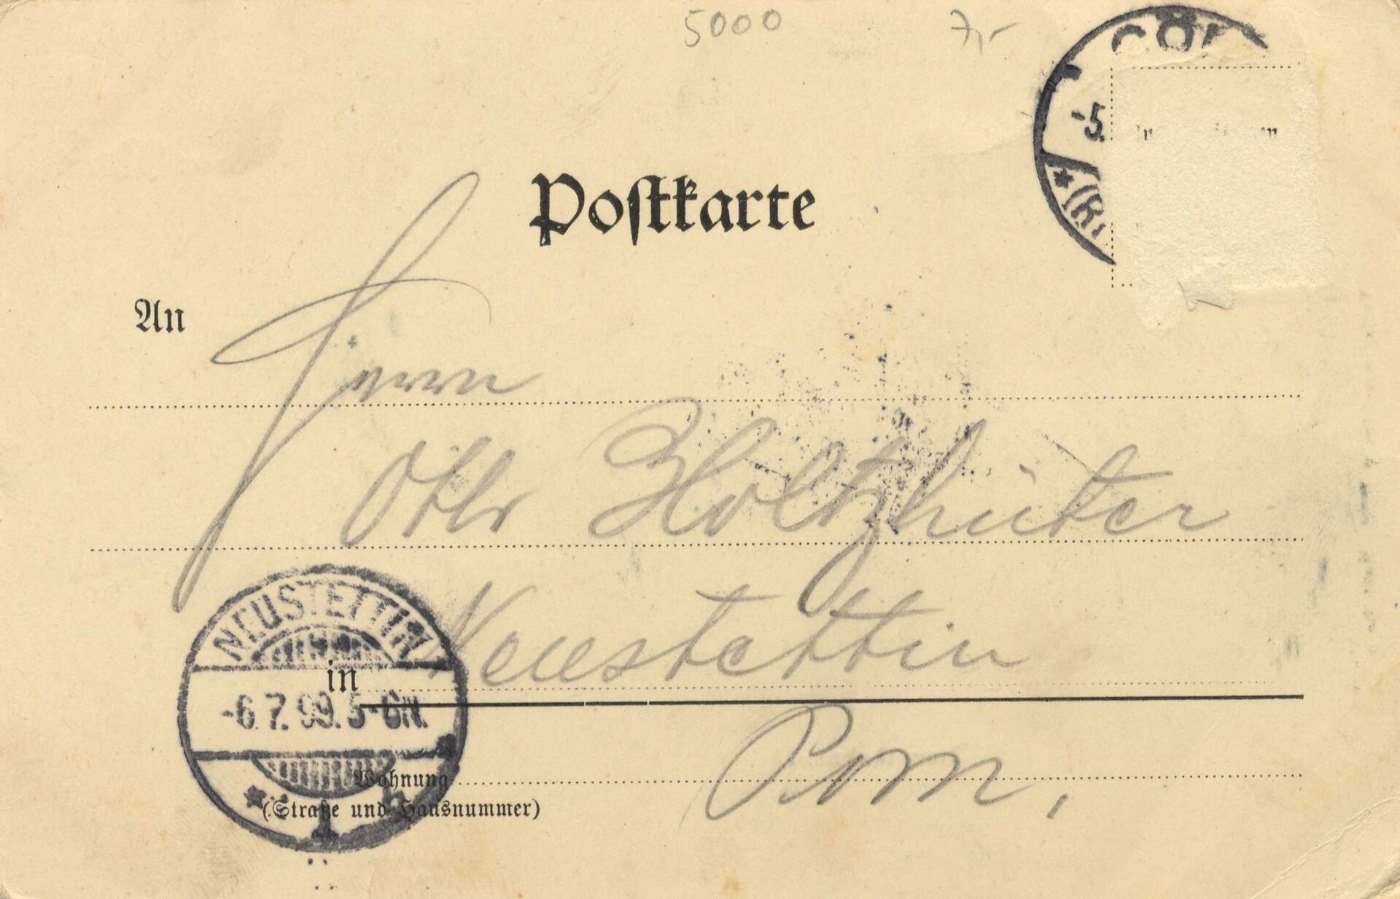 5000 7,-
CÖL
-5.
Postkarte
An
Herrn
Otto Holtzhüter
Neustettin
NEUSTETTIN
in
-6.7.99.5-6N.
Pom.
Wohnung
(Straße und Hausnummer)
1